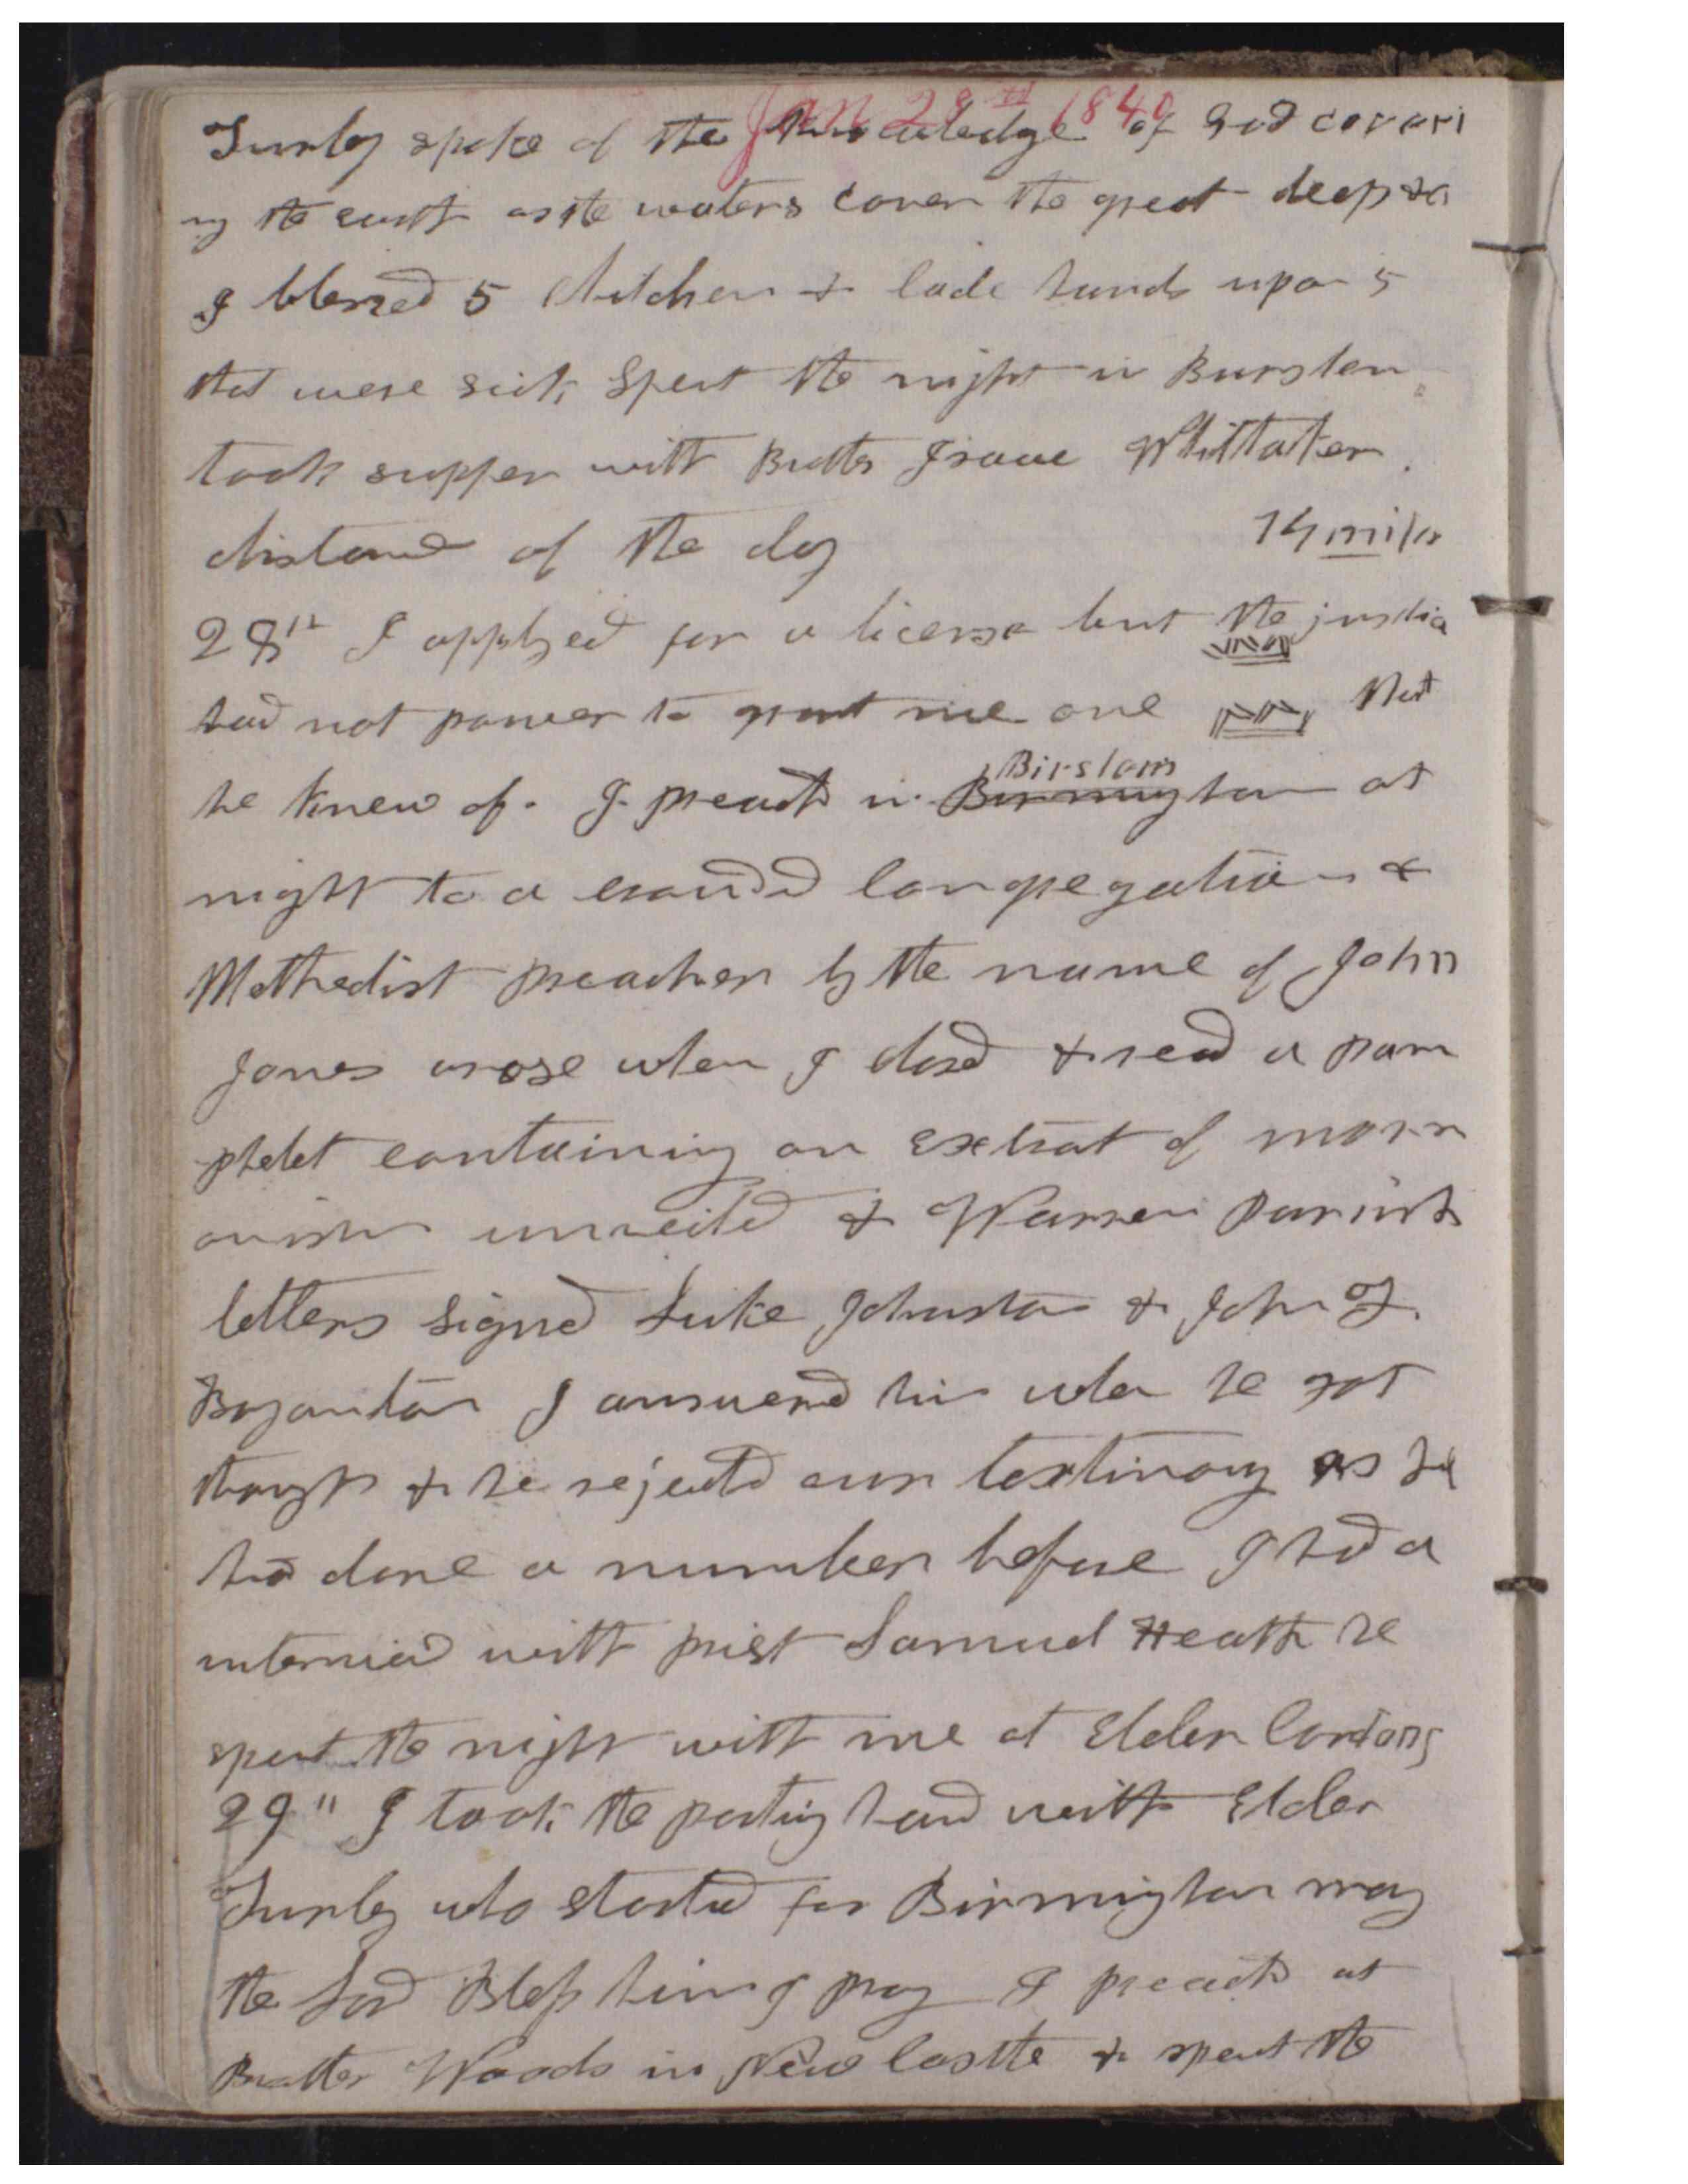 Jan 28th 1840
Turley spoke of the knowledge of God coveri
ng the earth as the waters cover the great deep &c
I blessed 5 Children & lade hands upon 5
that were sick, Spent the night in Burslem
took supper with Brother Isaac Whittaker.
distance of the day 14 miles
28th I applyed for a license but the justice
had not power to grant me one that
he knew of. I preachd in Birmingham Birslam at
night to a crowdd Congregation &
Methedist preacher by the name of John
Jones arose when I closd & read a pam
phlet containing an extrat of morm
onism unveild & Warren Parishs
letters signed Luke Johnston & John F.
Boyanton I answerd him when he got
through & he rejectd our testimony as he
had done a number before I had a
interview with priest Samuel Heath he
spent the night with me at Elder Cordons
29" I took the parting hand with Elder
Turley who started for Birmingham may
the Lord Bless him I pray I preachd at
Brother Woods in New Castle & spent the